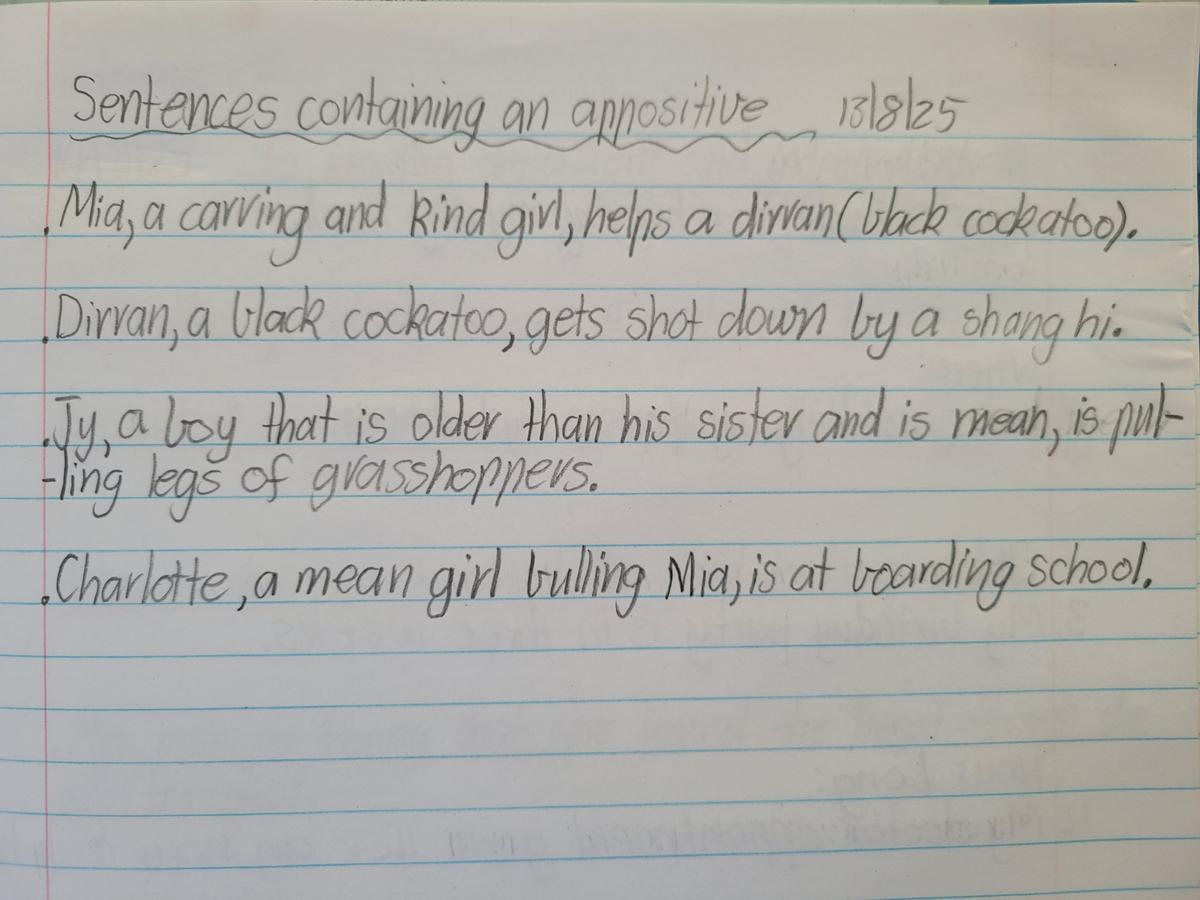 Sentences containing an appositive 13/8/25
. Mia, a carving and kind girl, helps a dirran (black cockatoo).
. Dirran, a black cockatoo, gets shot down by a shang hi.
. Jy, a boy that is older than his sister and is mean, is pul-
-ling legs of grasshoppers.
. Charlotte, a mean girl bulling Mia, is at boarding school.